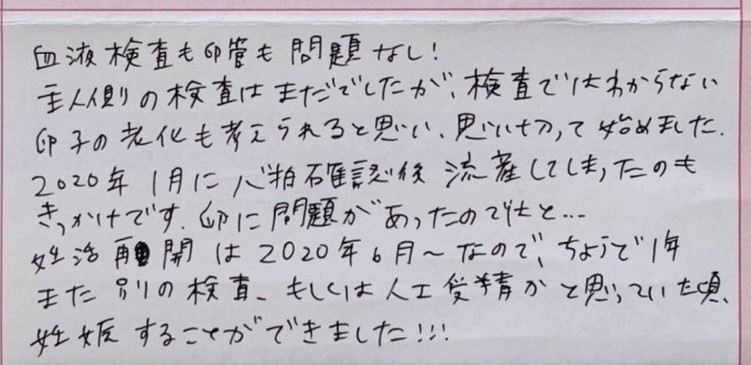 血液検査も卵管も問題なし!
主人側の検査はまだでしたが、検査ではわからない
卵子の老化も考えられると思い、思い切って始めました.
2020年1月に心拍確認後 流産してしまったのも
きっかけです. 卵に問題があったのではと...
妊活再開は2020年6月〜なので、ちょうど1年
また別の検査、もしくは人工受精かと思っていた頃、
妊娠することができました!!!